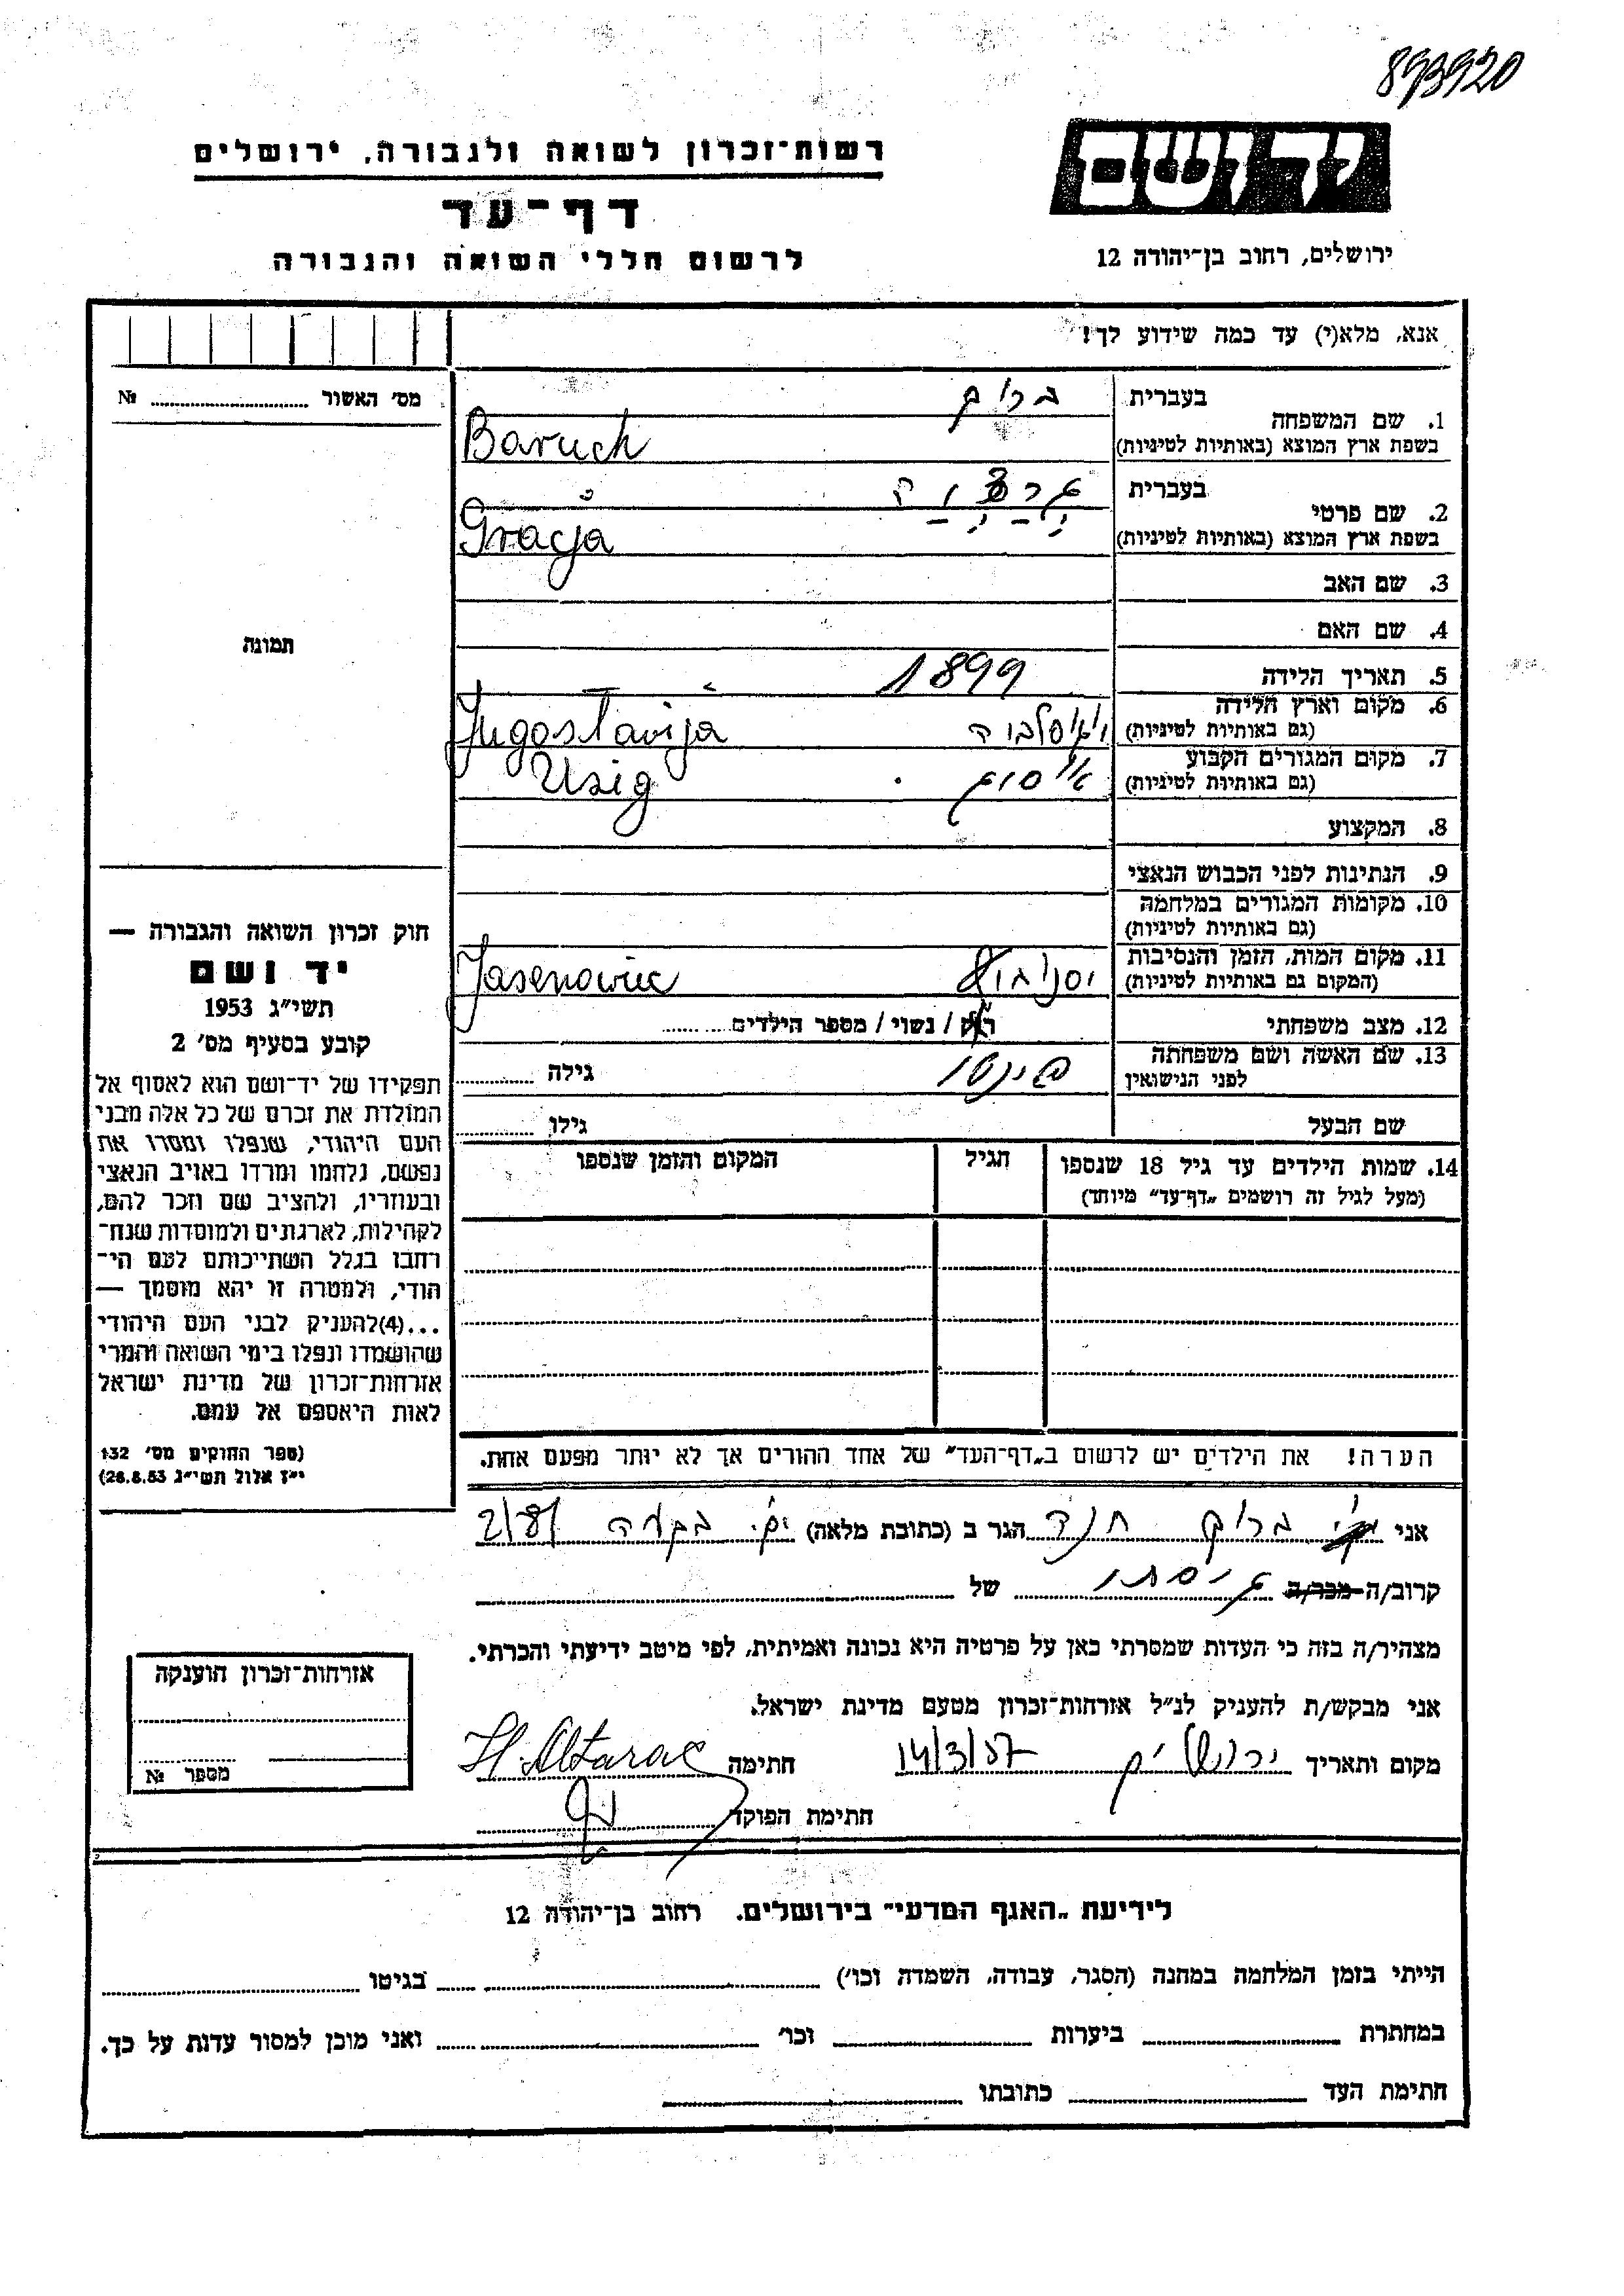 893920
יד ושם
ירושלים, רחוב בן־יהודה 12
רשות־זכרון לשואה ולגבורה, ירושלים
דף־עד
לרשום חללי השואה והגבורה
אנא, מלא(י) עד כמה שידוע לך!
מס׳ האשור № 
תמונה
1. שם המשפחה
בעברית ברוך
בשפת ארץ המוצא (באותיות לטיניות) Baruch
2. שם פרטי
בעברית
בשפת ארץ המוצא (באותיות לטיניות) Gracja
3. שם האב
4. שם האם
5. תאריך הלידה 1899
6. מקום וארץ הלידה
(גם באותיות לטיניות) Jugoslavija
7. מקום המגורים הקבוע
(גם באותיות לטיניות) Usig
8. המקצוע
9. הנתינות לפני הכבוש הנאצי
10. מקומות המגורים במלחמה
(גם באותיות לטיניות)
11. מקום המות, הזמן והנסיבות
(המקום גם באותיות לטיניות) Jasenowiec
12. מצב משפחתי רוק / נשוי / מספר הילדים
13. שם האשה ושם משפחתה
לפני הנישואין גילה
שם הבעל גילו
14. שמות הילדים עד גיל 18 שנספו הגיל המקום והזמן שנספו
(מעל לגיל זה רושמים „דף־עד״ מיוחד)
הערה! את הילדים יש לרשום ב„דף־העד״ של אחד ההורים אך לא יותר מפעם אחת.
חוק זכרון השואה והגבורה —
יד ושם
תשי״ג 1953
קובע בסעיף מס׳ 2
תפקידו של יד־ושם הוא לאסוף אל
המולדת את זכרם של כל אלה מבני
העם היהודי, שנפלו ומסרו את
נפשם, נלחמו ומרדו באויב הנאצי
ובעוזריו, ולהציב שם וזכר להם,
לקהילות, לארגונים ולמוסדות שנח־
רבו בגלל השתייכותם לעם הי־
הודי, ולמטרה זו יהא מוסמך —
...(4)להעניק לבני העם היהודי
שהושמדו ונפלו בימי השואה והמרי
אזרחות־זכרון של מדינת ישראל
לאות היאספם אל עמם.
(ספר החוקים מס׳ 132
י״ז אלול תשי״ג 28.8.53)
אני ברוך הגר ב (כתובת מלאה)
קרוב/ה מכר/ה גיסתו של
מצהיר/ה בזה כי העדות שמסרתי כאן על פרטיה היא נכונה ואמיתית, לפי מיטב ידיעתי והכרתי.
אני מבקש/ת להעניק לנ״ל אזרחות־זכרון מטעם מדינת ישראל.
מקום ותאריך ירושלים 14/3/57 חתימה H. Altarac
חתימת הפוקד
אזרחות־זכרון הוענקה
מספר №
לידיעת „האגף המדעי״ בירושלים. רחוב בן־יהודה 12
הייתי בזמן המלחמה במחנה (הסגר, עבודה, השמדה וכו׳) בגיטו
במחתרת ביערות וכו׳ ואני מוכן למסור עדות על כך.
חתימת העד כתובתו